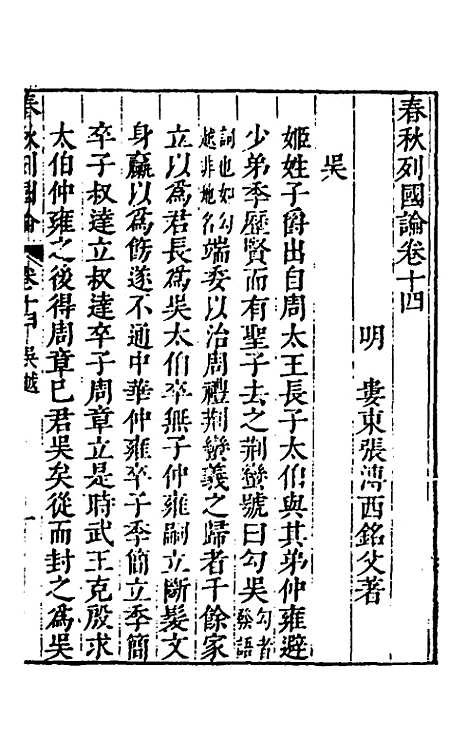 春秋列國論卷十四
明　婁東張溥西銘父著
吳
姬姓子爵出自周太王長子太伯與其弟仲雍避
少弟季歷賢而有聖子去之荆蠻號曰勾吳勾者發語
詞也如勾越非地名端委以治周禮荆蠻義之歸者千餘家
立以爲君長爲吳太伯卒無子仲雍嗣立斷髮文
身臝以爲飾遂不通中華仲雍卒子季簡立季簡
卒子叔達立叔達卒子周章立是時武王克殷求
太伯仲雍之後得周章已君吳矣從而封之爲吳
春秋列國論
卷十四
吳越
一